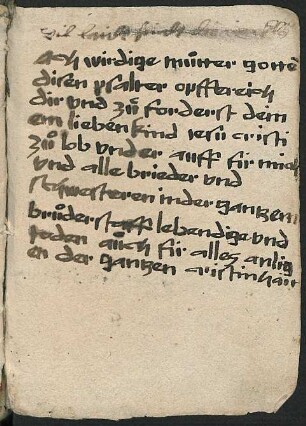 ach wirdige můtter gottes
disen psalter opffer ich
dir vnd zů forderst dem
em lieben kind iesu cristi
zů lob vnd er auff für mich
vnd alle brieder vnd
schwesteren in der gantzen
brůderschafft lebendige vnd
toden aůch für alles anlig
en der gantzen cristinhait